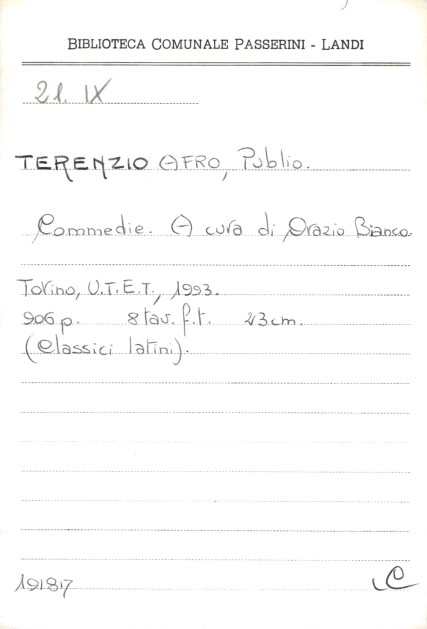 BIBLIOTECA COMUNALE PASSERINI - LANDI
21. IX
TERENZIO AFRO, Publio.
Commedie. A cura di Orazio Bianco.
Torino, U.T.E.T., 1993.
906 p. 8 tav. f.t. 23 cm.
(Classici latini).
191817
C